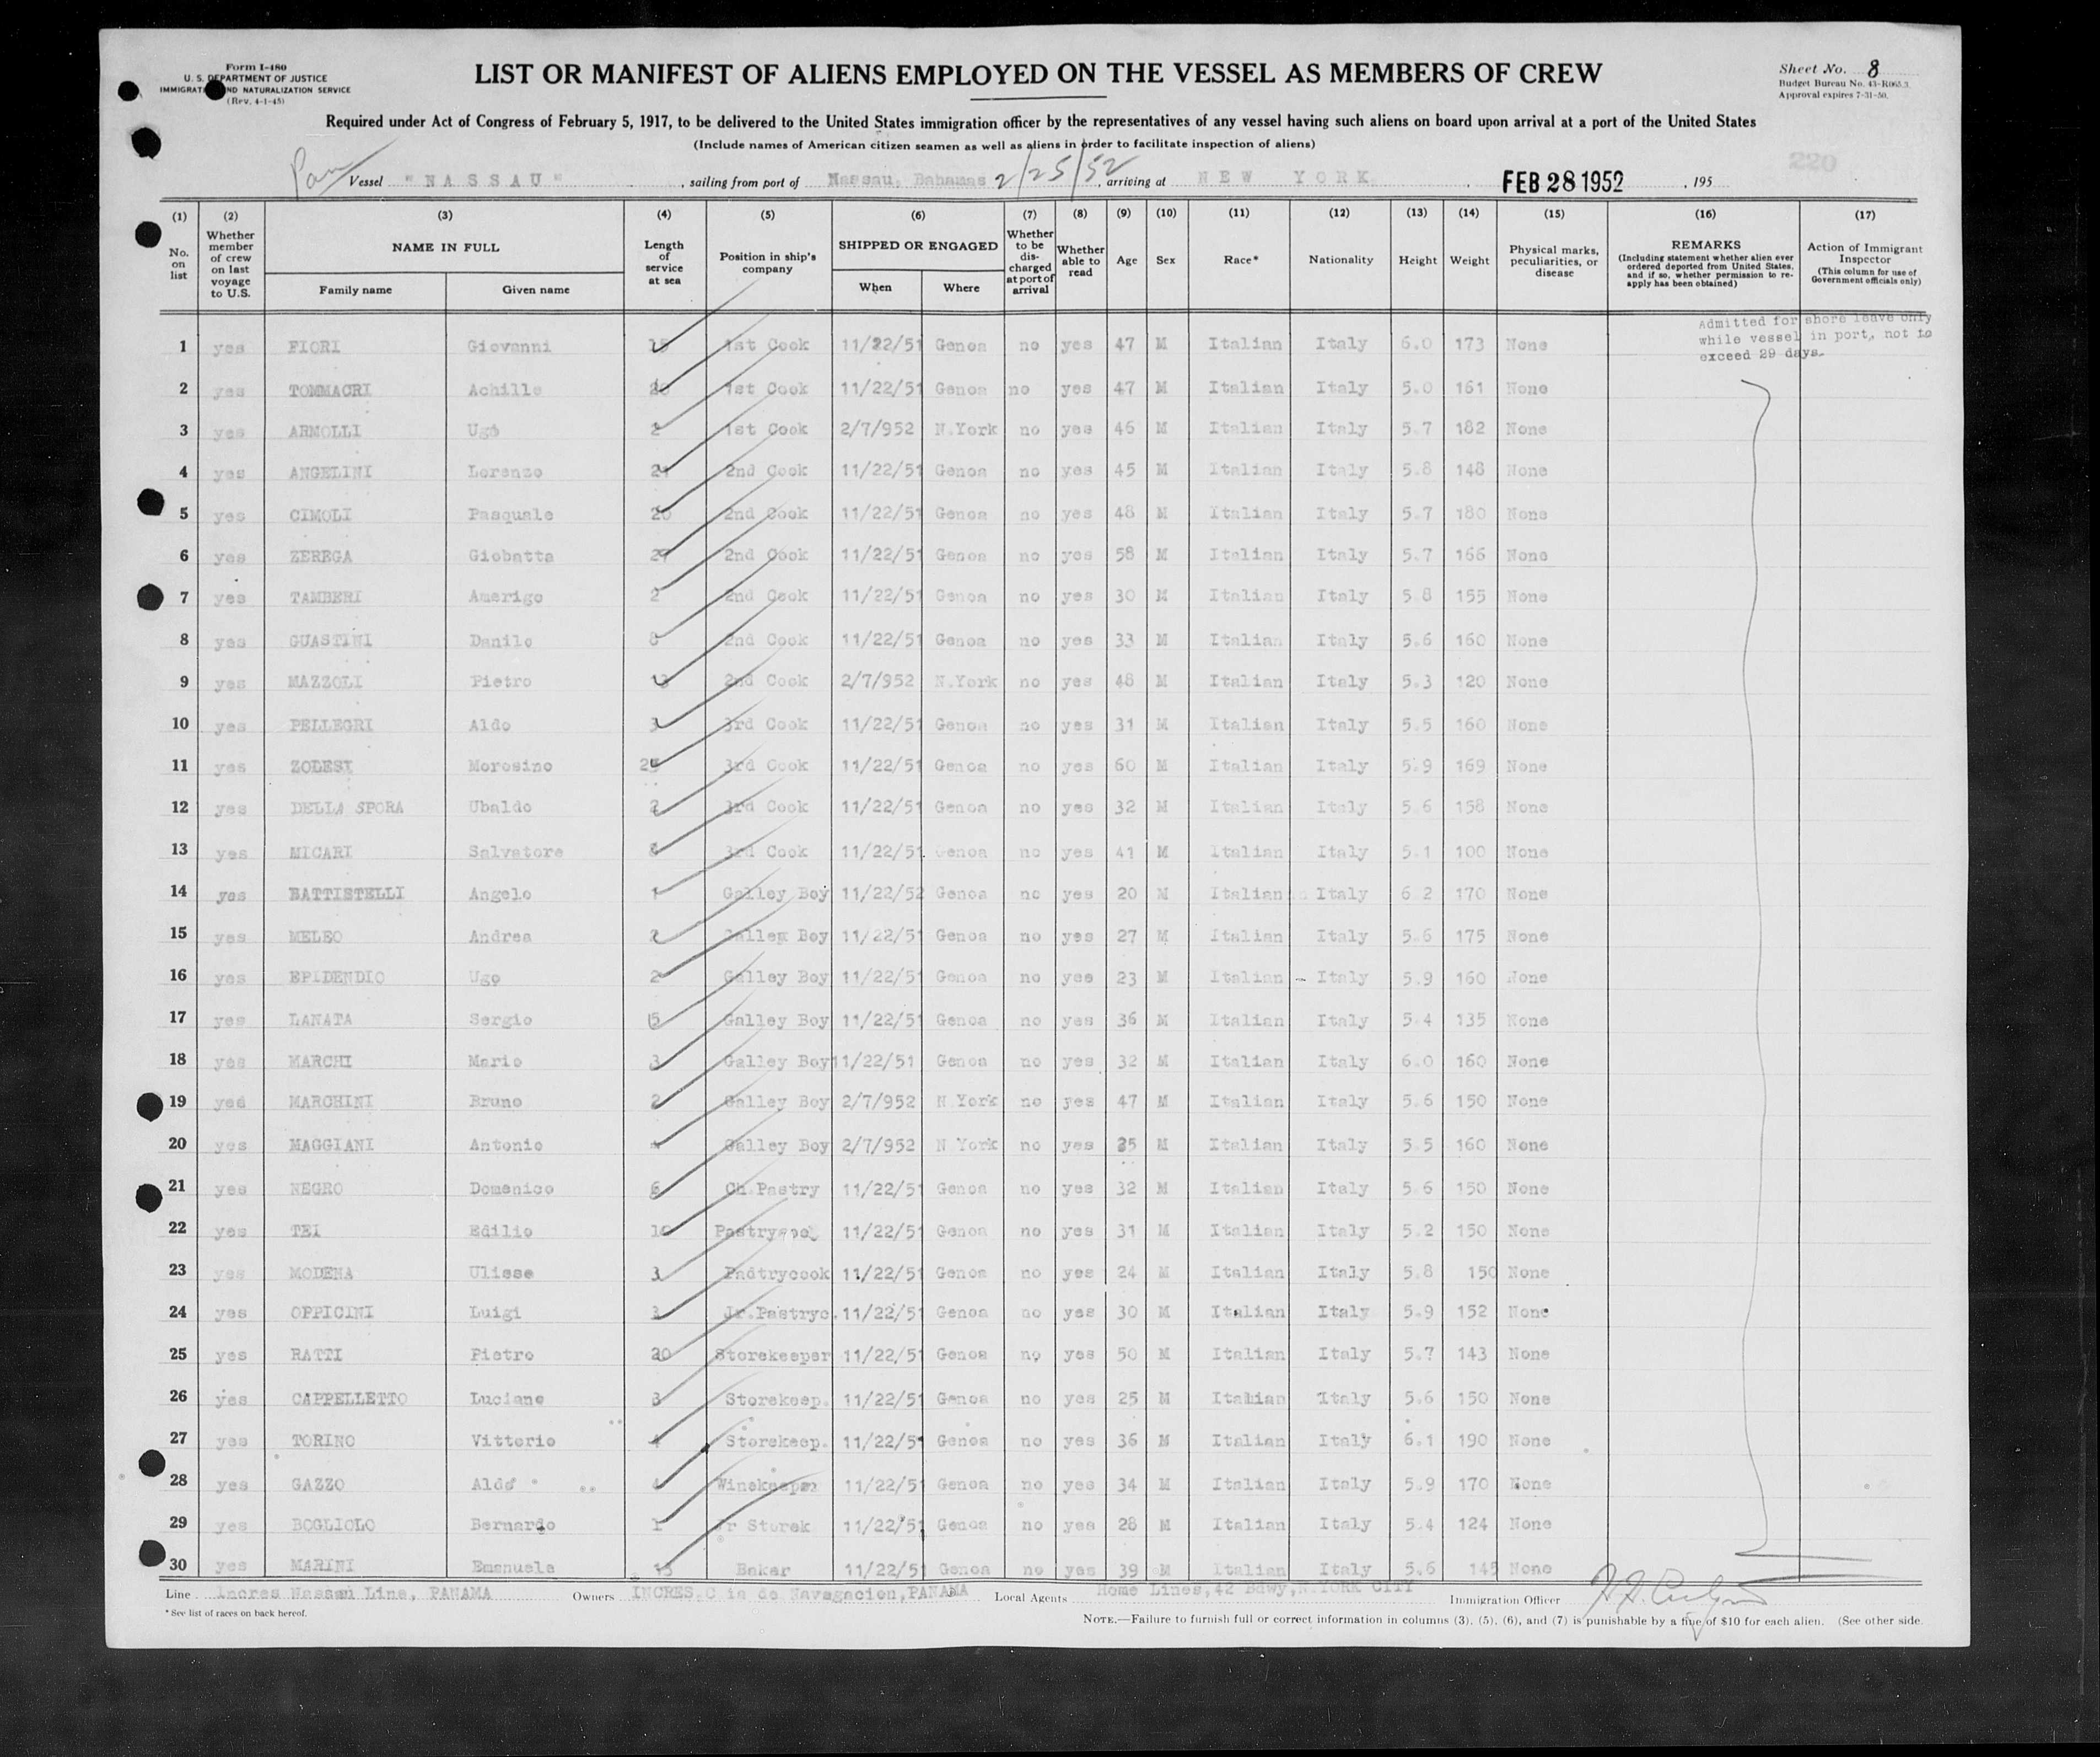 Form I-480
U. S. DEPARTMENT OF JUSTICE
IMMIGRATION AND NATURALIZATION SERVICE
(Rev. 4-1-45)
LIST OR MANIFEST OF ALIENS EMPLOYED ON THE VESSEL AS MEMBERS OF CREW
Sheet No. 8
Budget Bureau No. 43-R065.3.
Approval expires 7-31-50.
Required under Act of Congress of February 5, 1917, to be delivered to the United States immigration officer by the representatives of any vessel having such aliens on board upon arrival at a port of the United States
(Include names of American citizen seamen as well as aliens in order to facilitate inspection of aliens)
220
Pan Vessel "NASSAU" , sailing from port of Nassau, Bahamas 2/25/52 , arriving at NEW YORK FEB 28 1952 , 195
(1) (2) (3) (4) (5) (6) (7) (8) (9) (10) (11) (12) (13) (14) (15) (16) (17)
No. on list
Whether member of crew on last voyage to U.S.
NAME IN FULL
Family name Given name
Length of service at sea
Position in ship's company
SHIPPED OR ENGAGED
When Where
Whether to be discharged at port of arrival
Whether able to read
Age
Sex
Race*
Nationality
Height
Weight
Physical marks, peculiarities, or disease
REMARKS
(Including statement whether alien ever ordered deported from United States, and if so, whether permission to re-apply has been obtained)
Action of Immigrant Inspector
(This column for use of Government officials only)
Admitted for shore leave only
while vessel in port, not to
exceed 29 days.
1 yes FIORI Giovanni 15 1st Cook 11/22/51 Genoa no yes 47 M Italian Italy 6.0 173 None
2 yes TOMMACRI Achille 20 1st Cook 11/22/51 Genoa no yes 47 M Italian Italy 5.0 161 None
3 yes ARMOLLI Ugo 2 1st Cook 2/7/952 N.York no yes 46 M Italian Italy 5.7 182 None
4 yes ANGELINI Lorenzo 24 2nd Cook 11/22/51 Genoa no yes 45 M Italian Italy 5.8 148 None
5 yes CIMOLI Pasquale 20 2nd Cook 11/22/51 Genoa no yes 48 M Italian Italy 5.7 180 None
6 yes ZEREGA Giobatta 29 2nd Cook 11/22/51 Genoa no yes 58 M Italian Italy 5.7 166 None
7 yes TAMBERI Amerigo 2 2nd Cook 11/22/51 Genoa no yes 30 M Italian Italy 5 8 155 None
8 yes GUASTINI Danilo 8 2nd Cook 11/22/51 Genoa no yes 33 M Italian Italy 5.6 160 None
9 yes MAZZOLI Pietro 13 2nd Cook 2/7/952 N.York no yes 48 M Italian Italy 5.3 120 None
10 yes PELLEGRI Aldo 3 3rd Cook 11/22/51 Genoa no yes 31 M Italian Italy 5.5 160 None
11 yes ZOLESI Morosino 3rd Cook 11/22/51 Genoa no yes 60 M Italian Italy 5.9 169 None
12 yes DELLA SPORA Ubaldo 2 3rd Cook 11/22/51 Genoa no yes 32 M Italian Italy 5.6 158 None
13 yes MICARI Salvatore 3rd Cook 11/22/51 Genoa no yes 41 M Italian Italy 5.1 100 None
14 yes BATTISTELLI Angelo 1 Galley Boy 11/22/52 Genoa no yes 20 M Italian Italy 6 2 170 None
15 yes MELEO Andrea 2 Galley Boy 11/22/51 Genoa no yes 27 M Italian Italy 5.6 175 None
16 yes EPIDENDIO Ugo 2 Galley Boy 11/22/51 Genoa no yes 23 M Italian - Italy 5.9 160 None
17 yes LANATA Sergio 5 Galley Boy 11/22/51 Genoa no yes 36 M Italian Italy 5.4 135 None
18 yes MARCHI Mario 3 Galley Boy 11/22/51 Genoa no yes 32 M Italian Italy 6.0 160 None
19 yed MARCHINI Bruno 2 Galley Boy 2/7/952 N.York no yes 47 M Italian Italy 5.6 150 None
20 yes MAGGIANI Antonio Galley Boy 2/7/952 N York no yes 35 M Italian Italy 5.5 160 None
21 yes NEGRO Domenico 6 Ch.Pastry 11/22/51 Genoa no yes 32 M Italian Italy 5.6 150 None
22 yes TEI Edilio 10 11/22/51 Genoa no yes 31 M Italian Italy 5.2 150 None
23 yes MODENA Ulisse 3 Padtrycook 11/22/51 Genoa no yes 24 M Italian Italy 5.8 150 None
24 yes OPPICINI Luigi 3 Jr.Pastryc. 11/22/51 Genoa no yes 30 M Italian Italy 5.9 152 None
25 yes RATTI Pietro 20 Storekeeper 11/22/51 Genoa no yes 50 M Italian Italy 5.7 143 None
26 yes CAPPELLETTO Luciano 3 Storekeep. 11/22/51 Genoa no yes 25 M Italian Italy 5.6 150 None
27 yes TORINO Vittorio 4 Storekeep. 11/22/51 Genoa no yes 36 M Italian Italy 6.1 190 None
28 yes GAZZO Aldo 4 Winekeeper 11/22/51 Genoa no yes 34 M Italian Italy 5.9 170 None
29 yes BOGLIOLO Bernardo 1 Jr Storek 11/22/51 Genoa no yes 28 M Italian Italy 5.4 124 None
30 yes MARINI Emanuele 15 Baker 11/22/51 Genoa no yes 39 M Italian Italy 5.6 145 None
Line Incres Nassau Line, PANAMA Owners INCRES.C ia de Navegacion,PANAMA Local Agents Home Lines,42 Bdwy,N.YORK CITY Immigration Officer
* See list of races on back hereof.
NOTE.—Failure to furnish full or correct information in columns (3), (5), (6), and (7) is punishable by a fine of $10 for each alien. (See other side.